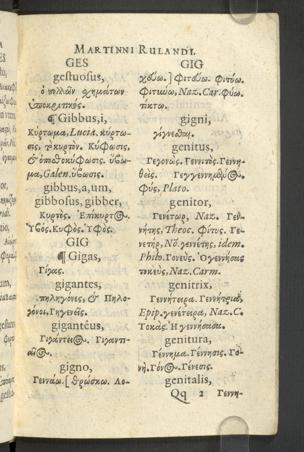 MARTINNI RULANDI.
GES
gestuosus,
ὁ πολλῶν σχημάτων
ὑποκριτικός.
¶ Gibbus, i,
Κύρτωμα, Lucia. κύρτω-
σις, τὸ κυρτόν. Κύφωσις.
& ὑπο κύφωσις. ὕβω-
μα, Galen. ὕβωσις.
gibbus, a, um,
gibbosus, gibber,
Κυρτὸς. Ἐπίκυρτος.
Ὑβός. Κυφός. Ὑφός.
GIG
¶ Gigas,
Γίγας.
gigantes,
πηλογόνοι, & Πηλο-
γόνοι, Γηγενεῖς.
gigantéus,
Γιγάντειος. Γιγαντι-
αῖος.
gigno,
Γεννάω. [θρώσκω. Λο-
GIG
χεύω.] Φιτεύω. Φιτύω.
Φιτύω, Naz. Car. φύω.
τίκτω.
gigni,
γίγνεσθαι.
genitus,
Γεγονώς. Γεννητὸς. Γεννη-
θείς. Γεγεννημένος.
Φύς, Plato.
genitor,
Γενέτωρ, Naz. Γεν-
νήτης, Theoc. Φίτυς. Γε-
νετήρ, Νό. γενέτης, idem.
Philo. Γονεύς. Ὁ γεννήσας
τοκεύς, Naz. Carm.
genitrix,
Γεννήτειρα. Γεννήτρια,
Epip. γενέτειρα, Naz. C.
Τοκάς. Ἡ γεννήσασα.
genitura,
Γέννημα. Γέννησις. Γο-
νή. Γόνος. Γένεσις.
genitalis,
Qq 2 Γεννη-